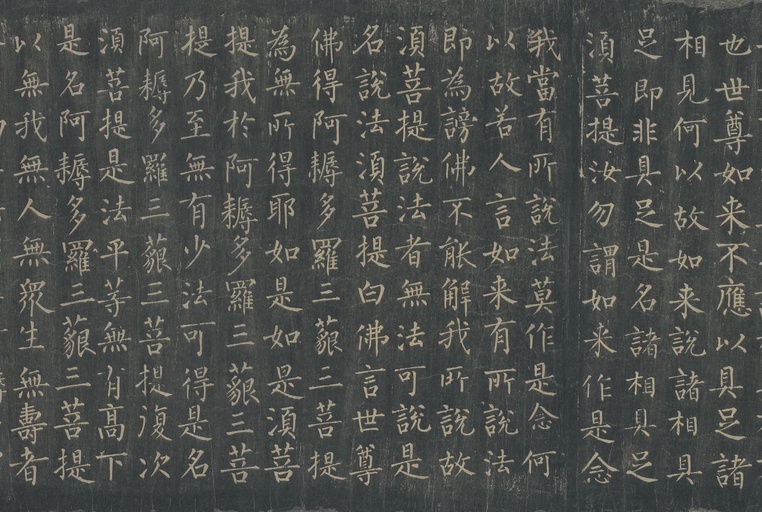 也世尊如来不應以具足諸
相見何以故如来說諸相具
足即非具足是名諸相具足
須菩提汝勿謂如来作是念
我當有所說法莫作是念何
以故若人言如来有所說法
即為謗佛不能解我所說故
須菩提說法者無法可說是
名說法須菩提白佛言世尊
佛得阿耨多羅三藐三菩提
為無所得耶如是如是須菩
提我於阿耨多羅三藐三菩
提乃至無有少法可得是名
阿耨多羅三藐三菩提復次
須菩提是法平等無有高下
是名阿耨多羅三藐三菩提
以無我無人無衆生無壽者